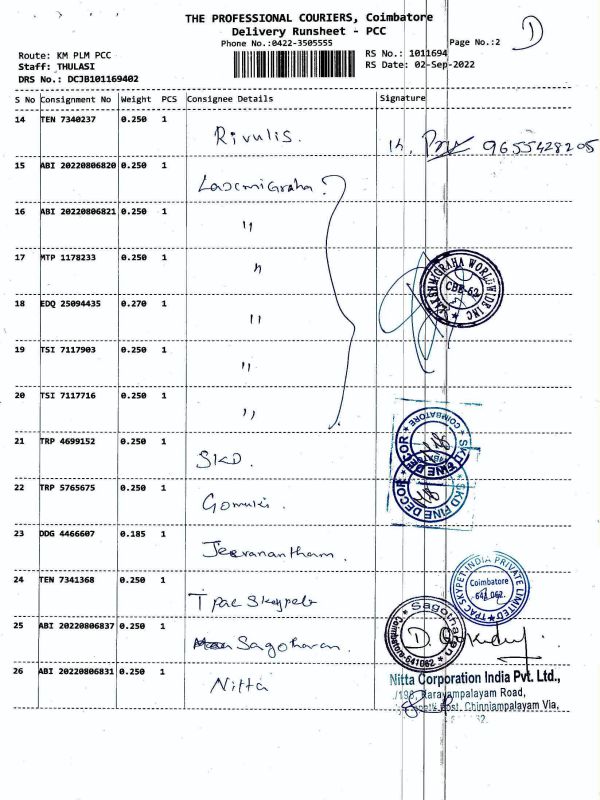 THE PROFESSIONAL COURIERS, Coimbatore
Delivery Runsheet - PCC
Phone No.:0422-3505555
Page No.:2
1
Route: KM PLM PCC
Staff: THULASI
DRS No.: DCJB101169402
RS No.: 1011694
RS Date: 02-Sep-2022
S No Consignment No Weight PCS Consignee Details Signature
14 TEN 7340237 0.250 1 Rivulis. 9655428205
15 ABI 20220806820 0.250 1 Laxmigraha
16 ABI 20220806821 0.250 1 "
17 MTP 1178233 0.250 1 "
LAKSHMIGRAHA WORLDWIDE INC
CBE-62
18 EDQ 25094435 0.270 1 "
19 TSI 7117903 0.250 1 "
20 TSI 7117716 0.250 1 "
21 TRP 4699152 0.250 1 SKD.
SKD FINE DECOR
COIMBATORE
22 TRP 5765675 0.250 1 Gomuki.
SKD FINE DECOR
23 DDG 4466607 0.185 1 Jeevanantham.
24 TEN 7341368 0.250 1 Tpac Skypet
TPAC SKYPET INDIA PRIVATE LIMITED
Coimbatore
641 062.
25 ABI 20220806837 0.250 1 Sagotharan.
Sagotharan
Coimbatore-641062
26 ABI 20220806831 0.250 1 Nitta
Nitta Corporation India Pvt. Ltd.,
Karayampalayam Road,
Post, Chinniampalayam Via,